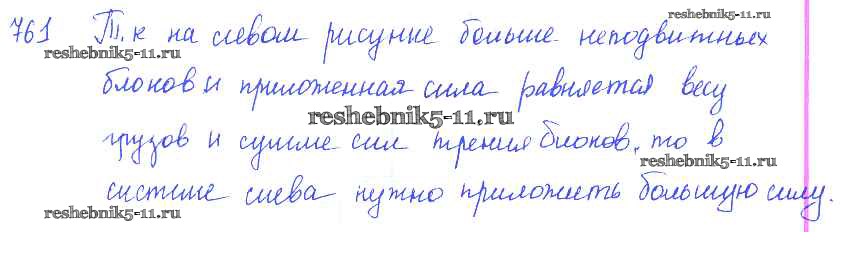 reshebnik5-11.ru
761 Т.к на левом рисунке больше неподвижных
reshebnik5-11.ru
блоков и приложенная сила равняется весу
reshebnik5-11.ru
грузов и сумме сил трения блоков, то в
reshebnik5-11.ru
системе слева нужно приложить большую силу.
reshebnik5-11.ru